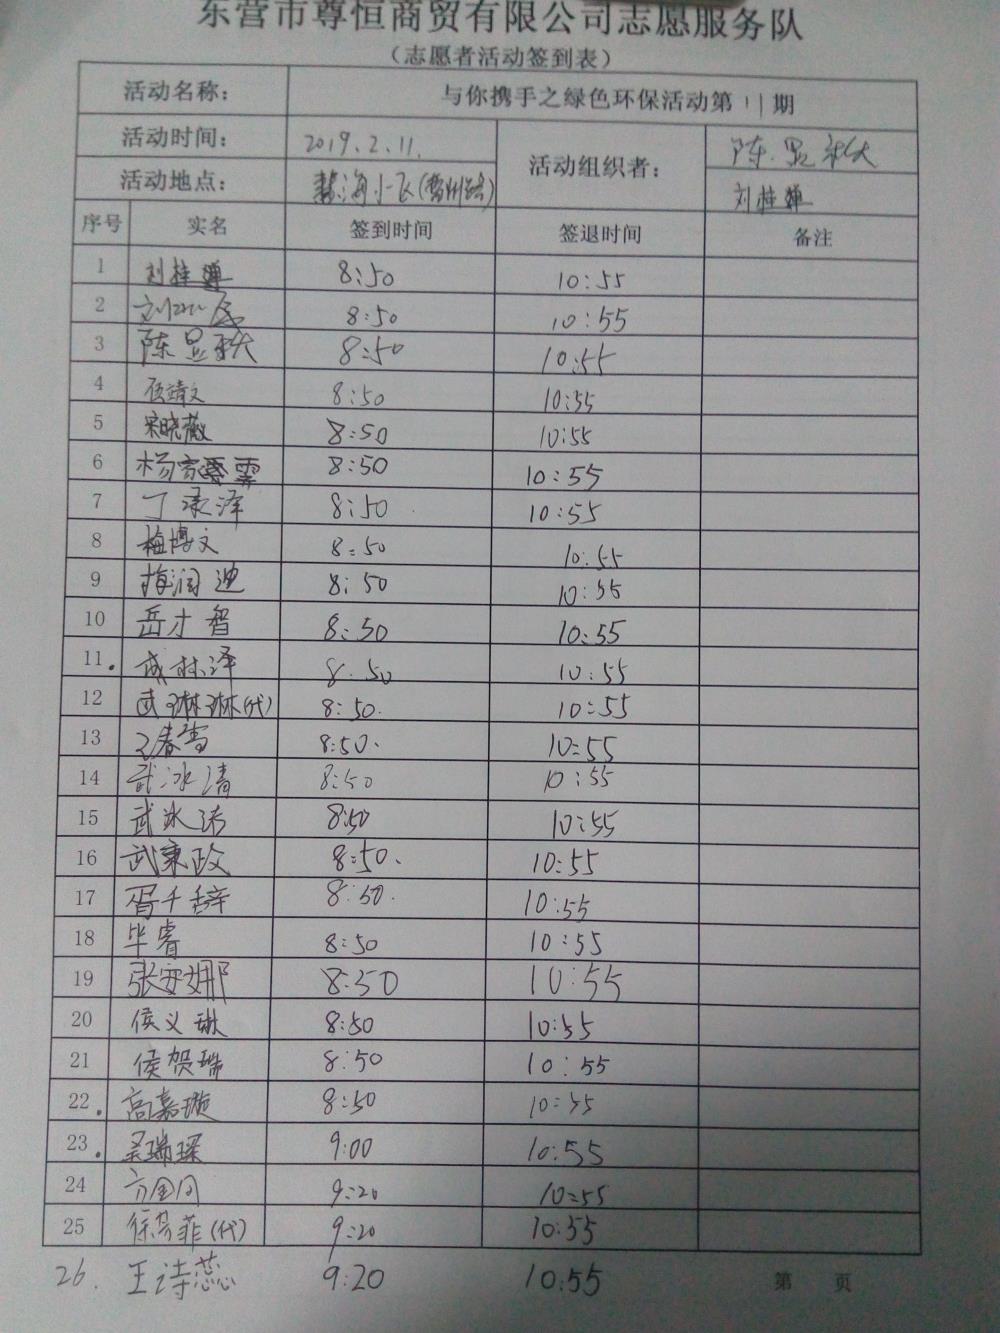 东营市尊恒商贸有限公司志愿服务队
（志愿者活动签到表）
活动名称： 与你携手之绿色环保活动第 11 期
活动时间： 2019.2.11. 活动组织者： 陈显
活动地点： 海小飞( 刘桂
序号 实名 签到时间 签退时间 备注
1 刘桂 8:50 10:55
2 刘 8:50 10:55
3 陈显 8:50 10:55
4 8:50 10:55
5 宋晓薇 8:50 10:55
6 杨 8:50 10:55
7 丁承泽 8:50 10:55
8 梅博文 8:50 10:55
9 梅润迪 8:50 10:55
10 岳才智 8:50 10:55
11. 成林泽 8:50 10:55
12 武琳琳(代) 8:50. 10:55
13 王春雪 8:50. 10:55
14 武冰清 8:50 10:55
15 武冰洁 8:50 10:55
16 武秉政 8:50. 10:55
17 胥千 8:50. 10:55
18 毕睿 8:50 10:55
19 张安娜 8:50 10:55
20 侯义琳 8:50 10:55
21 侯贺瑞 8:50 10:55
22. 高嘉璇 8:50 10:55
23. 瑞琛 9:00 10:55
24 9:20 10:55
25 徐芳菲(代) 9:20 10:55
26. 王诗蕊 9:20 10:55 第 页